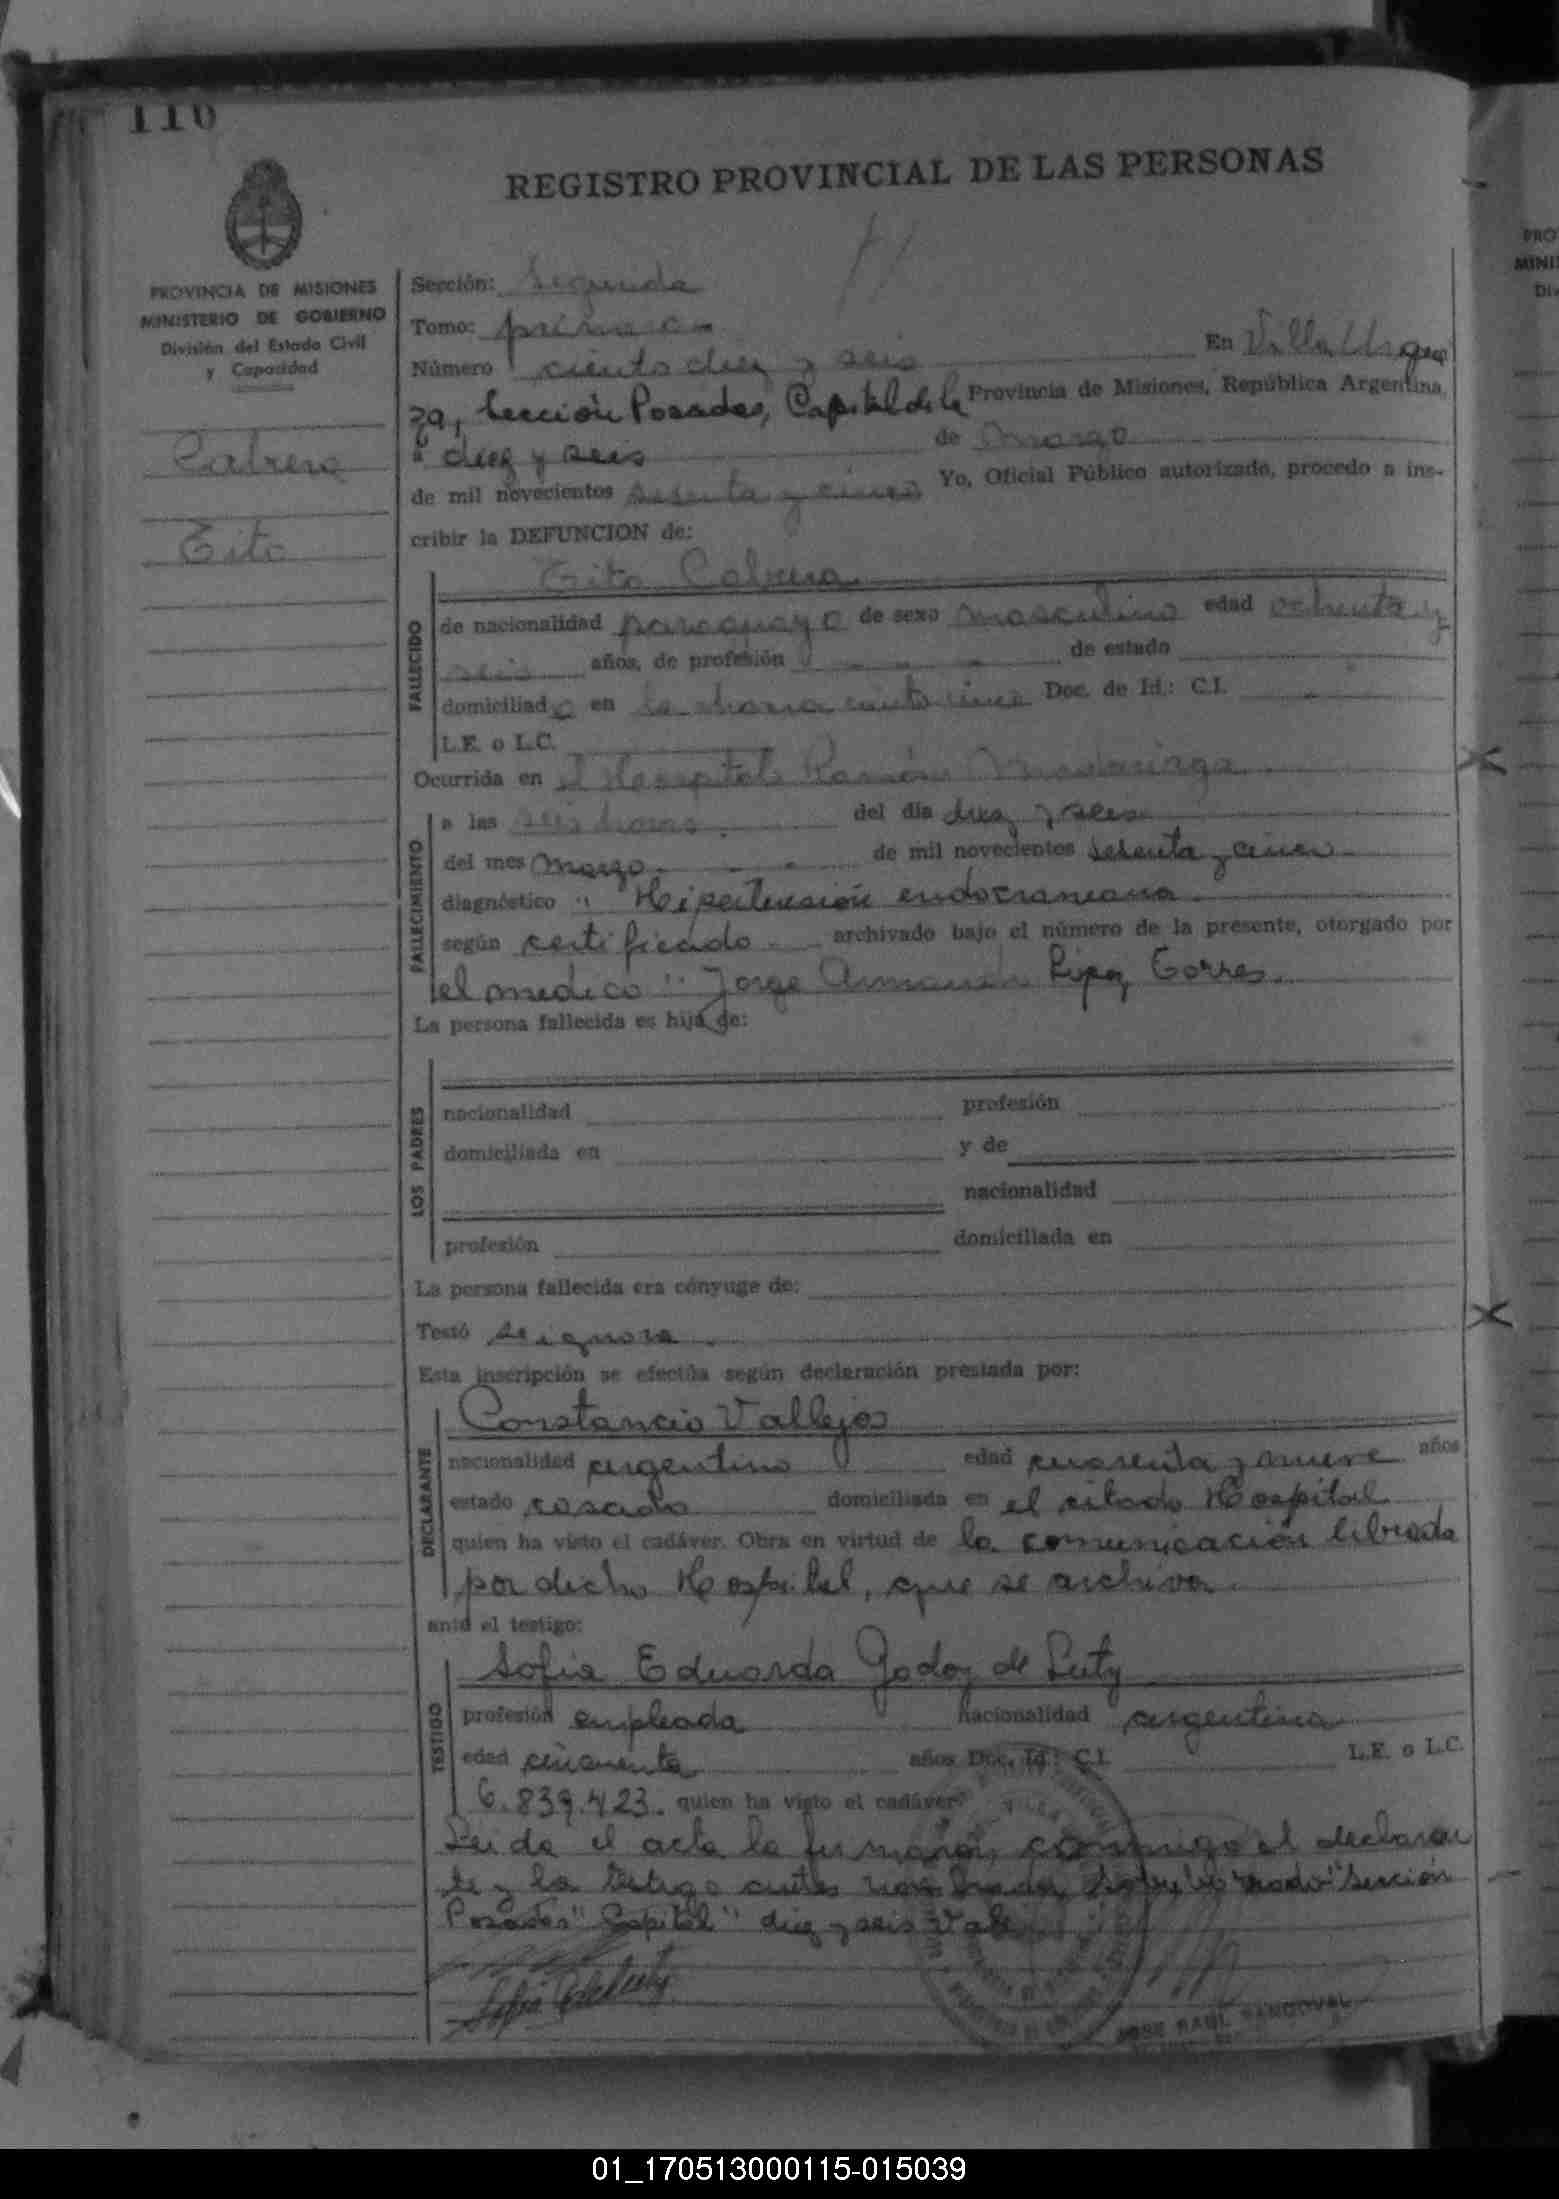 116
REGISTRO PROVINCIAL DE LAS PERSONAS
PROVINCIA DE MISIONES
MINISTERIO DE GOBIERNO
División del Estado Civil
y Capacidad
Cabrera
Tito
Sección: Segunda
Tomo: primero
Número ciento diez y seis En Villa Urqui
za, Sección Posadas, Capital de la Provincia de Misiones, República Argentina,
a diez y seis de marzo
de mil novecientos sesenta y cinco Yo, Oficial Público autorizado, procedo a ins-
cribir la DEFUNCION de:
Tito Cabrera
FALLECIDO
de nacionalidad paraguayo de sexo masculino edad ochenta y
seis años, de profesión de estado
domiciliado en la chacra ciento cinco Doc. de Id.: C.I.
L.E. o L.C.
Ocurrida en el Hospital Ramón Madariaga
FALLECIMIENTO
a las seis horas. del día diez y seis
del mes marzo de mil novecientos sesenta y cinco
diagnóstico " Hipertensión endocraneana
según certificado archivado bajo el número de la presente, otorgado por
el medico " Jorge Armando López Torres.
La persona fallecida es hijo de:
LOS PADRES
nacionalidad profesión
domiciliada en y de
nacionalidad
profesión domiciliada en
La persona fallecida era cónyuge de:
Testó se ignora.
Esta inscripción se efectúa según declaración prestada por:
DECLARANTE
Constancio Vallejos
nacionalidad argentino edad cuarenta y nueve años
estado casado domiciliada en el citado Hospital
quien ha visto el cadáver. Obra en virtud de la comunicación librada
por dicho Hospital, que se archiva.
ante el testigo:
TESTIGO
Sofia Eduarda Godoy de Luty
profesión empleada nacionalidad argentina
edad cincuenta años Doc. Id.: C.I. L.E. o L.C.
6.839.423. quien ha visto el cadáver
Leida el acta la firmaron conmigo el declaran
te y la testigo antes nombrada, "Sección
Posadas" Capital" diez y seis Vale
JOSE RAUL SANDOVAL
PRO
MINIS
Div
01_170513000115-015039